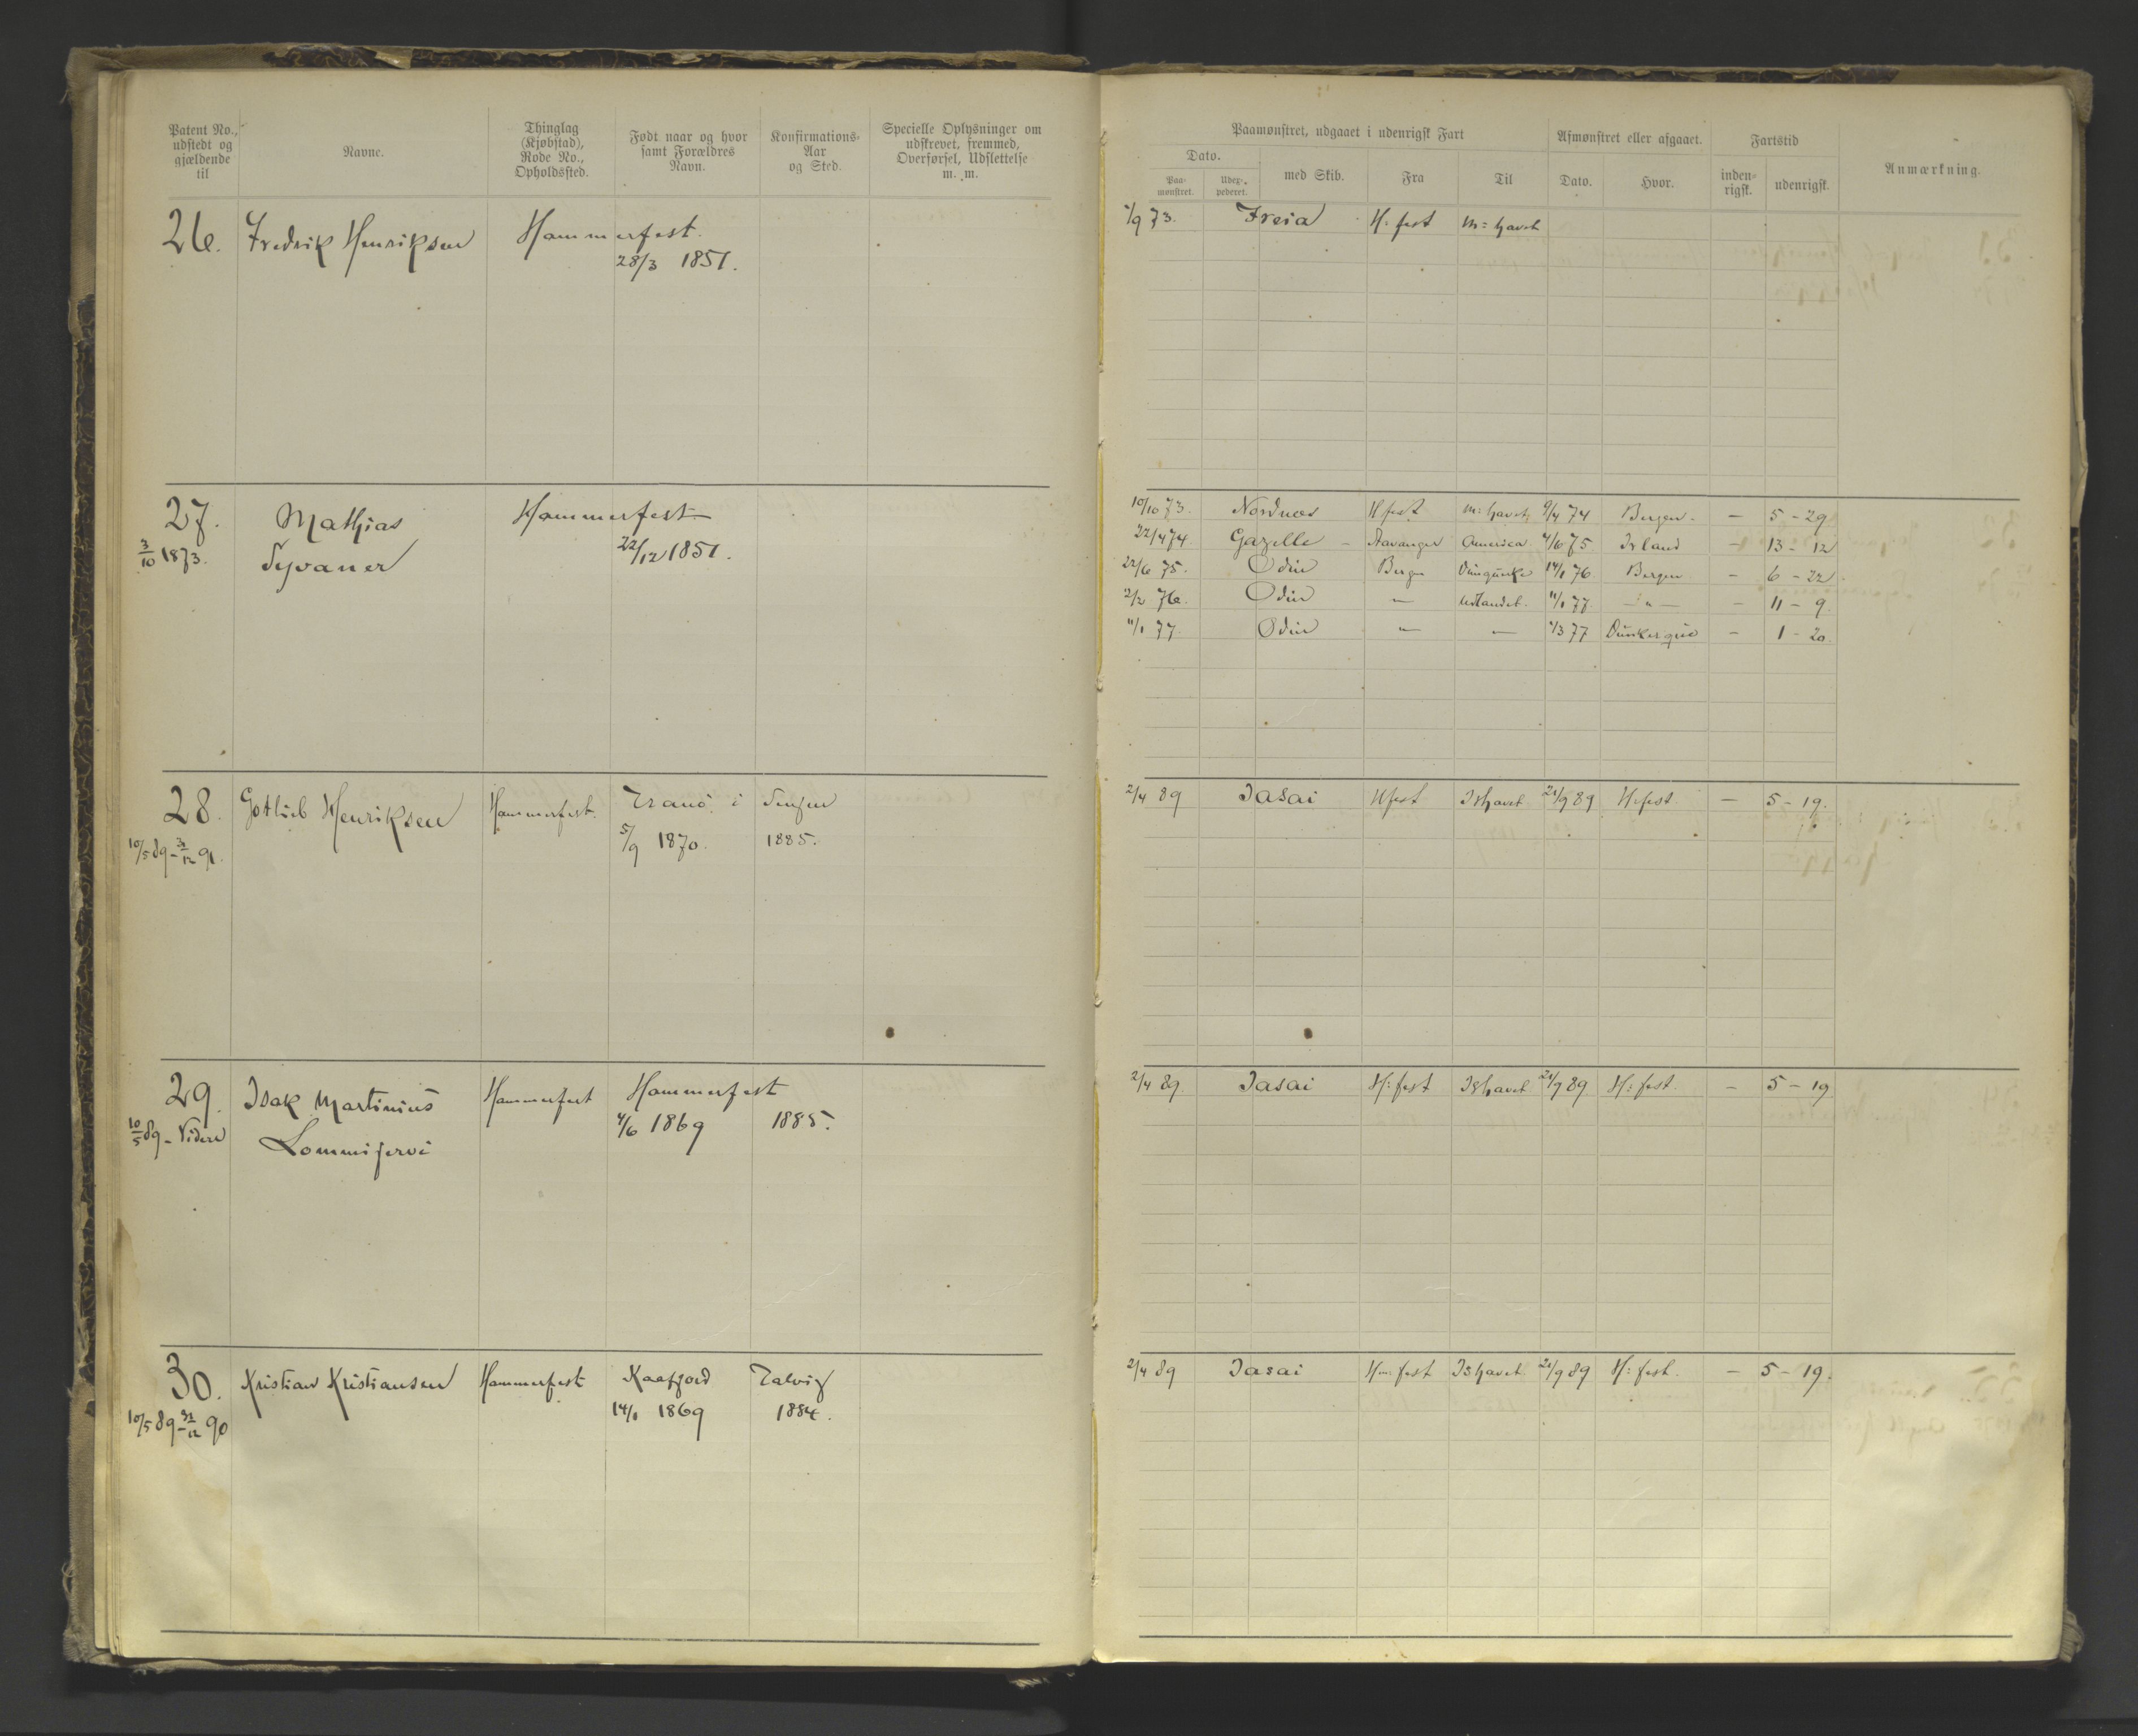 Patent No., udstedt og gjældende til
Navne.
Thinglag (Kjøbstad), Rode No., Opholdssted.
Født naar og hvor samt Forældres Navn.
Konfirmations-Aar og Sted.
Specielle Oplysninger om udskrevet, fremmed, Overførsel, Udslettelse m. m.
Paamønstret, udgaaet i udenrigsk Fart
Afmønstret eller afgaaet.
Fartstid
Anmærkning.
Dato.
Paa-mønstret.
Udex-pederet.
med Skib.
Fra
Til
Dato.
Hvor.
inden-rigsk.
udenrigsk.
26. Fredrik Henriksen Hammerfest.
28/3 1851.
/9 73. Freia H: fest M: havet
27. Mathias Hammerfest
3/10 1873. Syvaner 22/12 1851.
10/10 73. Nordnæs Hfest M: havet 9/4 74 Bergen - — 5 - 29
22/4 74. Gazelle - Stavanger America 4/6 75 Island — 13 - 12
22/6 75. Odin Bergen Dünqürke 14/1 76 Bergen — 6 - 22
2/2 76. Odin — Udlandet. 11/1 77. — „ — — 11 - 9.
11/1 77. Odin — — 1/3 77 Dünkerqüe — 1 - 20.
28. Gotlieb Henriksen Hammerfest. Tranö i Senjen
10/5 89 - 31/12 91. 5/9 1870. 1885.
2/4 89 Jasai Hfest Ishavet 21/9 89 H:fest. — 5 - 19.
29. Isak Martinius Hammerfest Hammerfest
10/5 89 - Videre Lommijervi 4/6 1869 1885.
2/4 89. Jasai H: fest Ishavet 21/9 89 H: fest. — 5 - 19
30. Kristian Kristiansen Hammerfest Kaafjord Talvig
10/5 89 - 31/12 90 14/1 1869 1884.
2/4 89 Jasai Hm: fest Ishavet 21/9 89 H: fest. — 5 - 19.